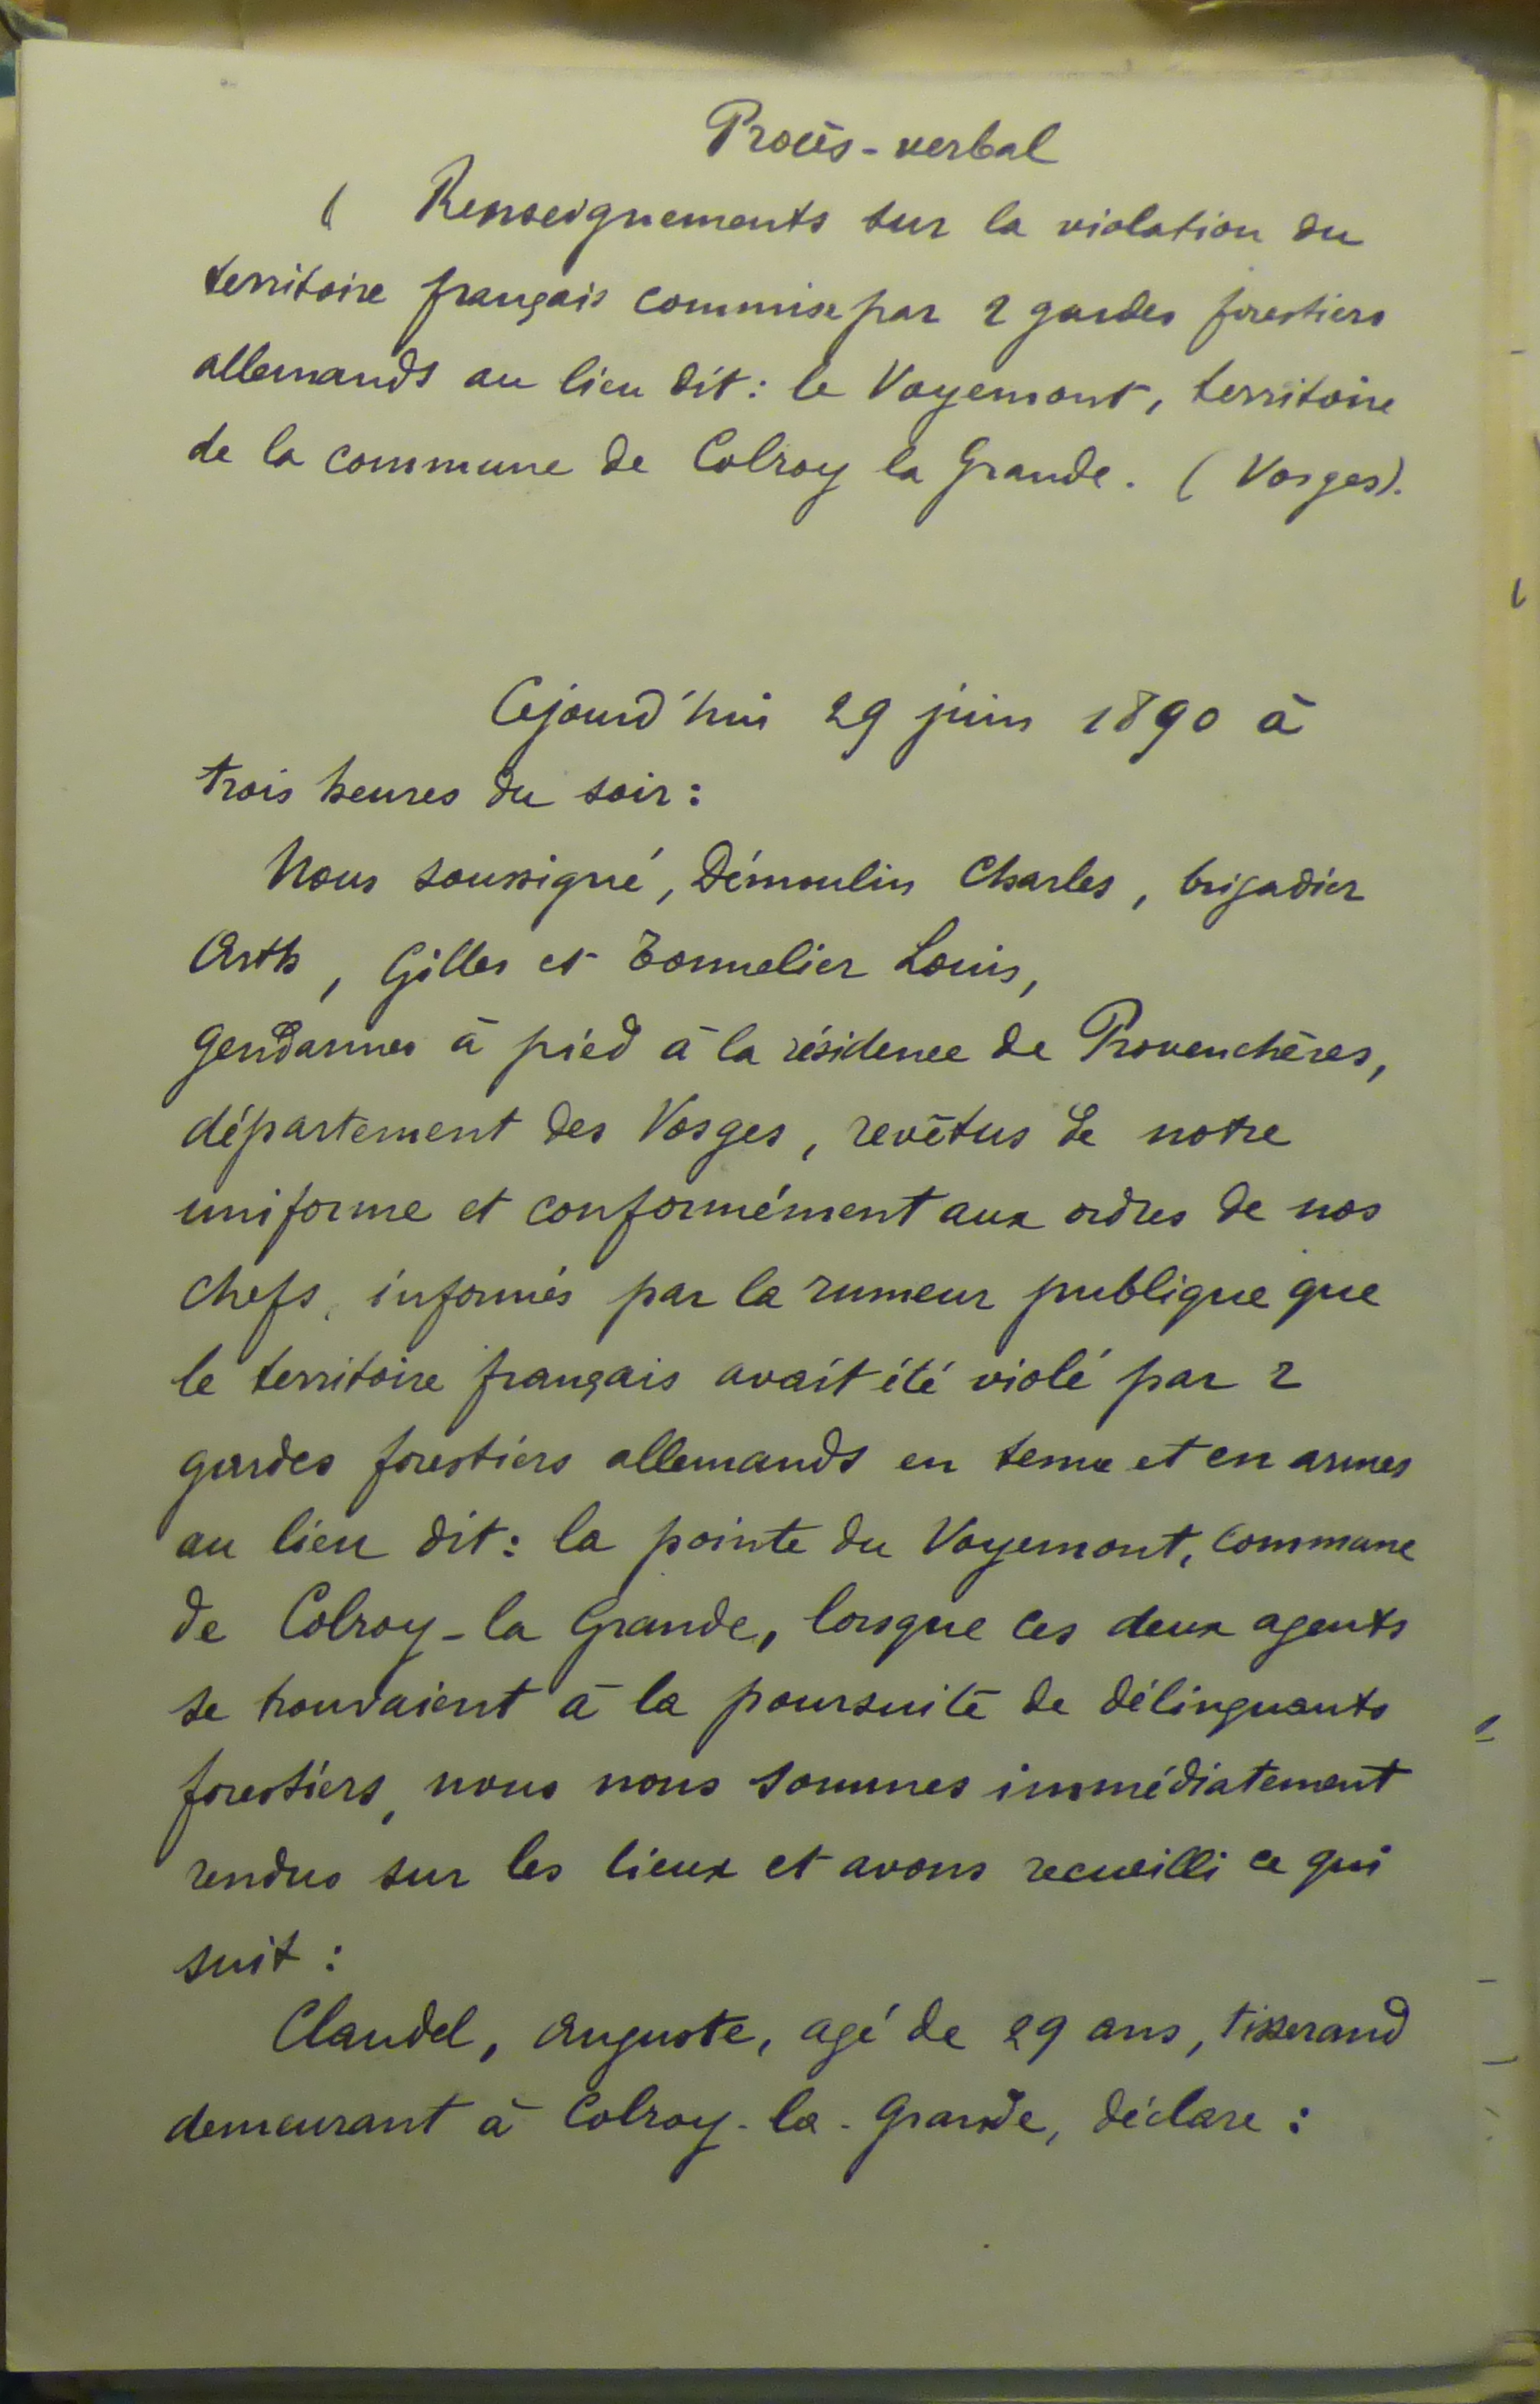 Procès-verbal
( Renseignements sur la violation du
territoire français commise par 2 gardes forestiers
allemands au lieu dit : le Voyemont, territoire
de la commune de Colroy la Grande. (Vosges).
Cejourd'hui 29 juin 1890 à
trois heures du soir :
Nous soussigné, Démoulin Charles, brigadier
Orth, Gilles et Tonnelier Louis,
gendarmes à pied à la résidence de Provenchères,
département des Vosges, revêtus de notre
uniforme et conformément aux ordres de nos
chefs, informés par la rumeur publique que
le territoire français avait été violé par 2
gardes forestiers allemands en tenue et en armes
au lieu dit : la pointe du Voyemont, commune
de Colroy-la Grande, lorsque ces deux agents
se trouvaient à la poursuite de délinquants
forestiers, nous nous sommes immédiatement
rendus sur les lieux et avons recueilli ce qui
suit :
Claudel, Auguste, agé de 29 ans, tisserand
demeurant à Colroy-la-Grande, déclare :